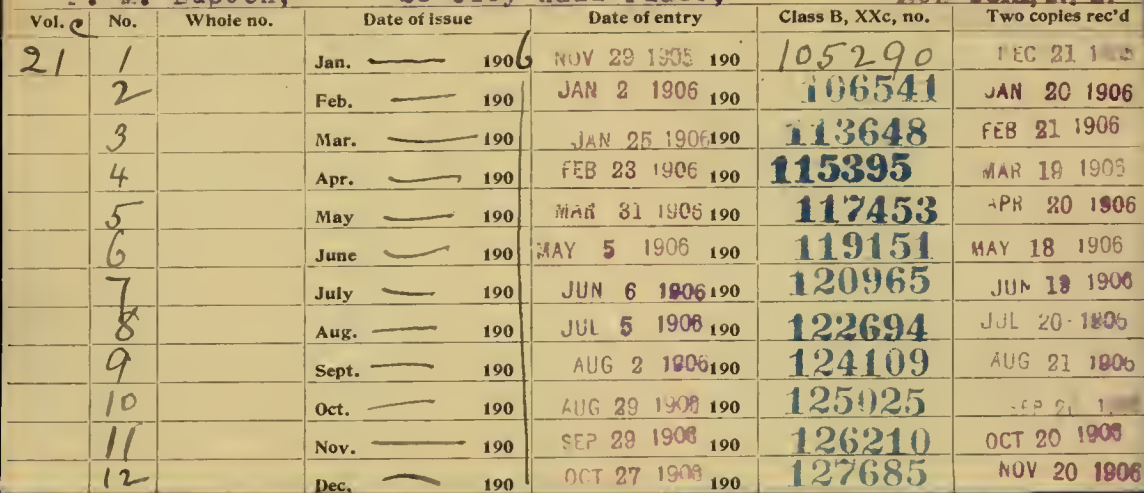 Vol. No. Whole no. Date of issue Date of entry Class B, XXc, no. Two copies rec'd
21 1 Jan. — 1906 NOV 29 1905 190 105290 DEC 21
2 Feb. — 190 JAN 2 1906 190 106541 JAN 20 1906
3 Mar. — 190 JAN 25 1906 190 113648 FEB 21 1906
4 Apr. — 190 FEB 23 1906 190 115395 MAR 19 1906
5 May — 190 MAR 31 1906 190 117453 APR 20 1906
6 June — 190 MAY 5 1906 190 119151 MAY 18 1906
7 July — 190 JUN 6 1906 190 120965 JUN 19 1906
8 Aug. — 190 JUL 5 1906 190 122694 JUL 20 1906
9 Sept. — 190 AUG 2 1906 190 124109 AUG 21 1906
10 Oct. — 190 AUG 29 1906 190 125025
11 Nov. — 190 SEP 29 1906 190 126210 OCT 20 1906
12 Dec. — 190 OCT 27 1906 190 127685 NOV 20 1906